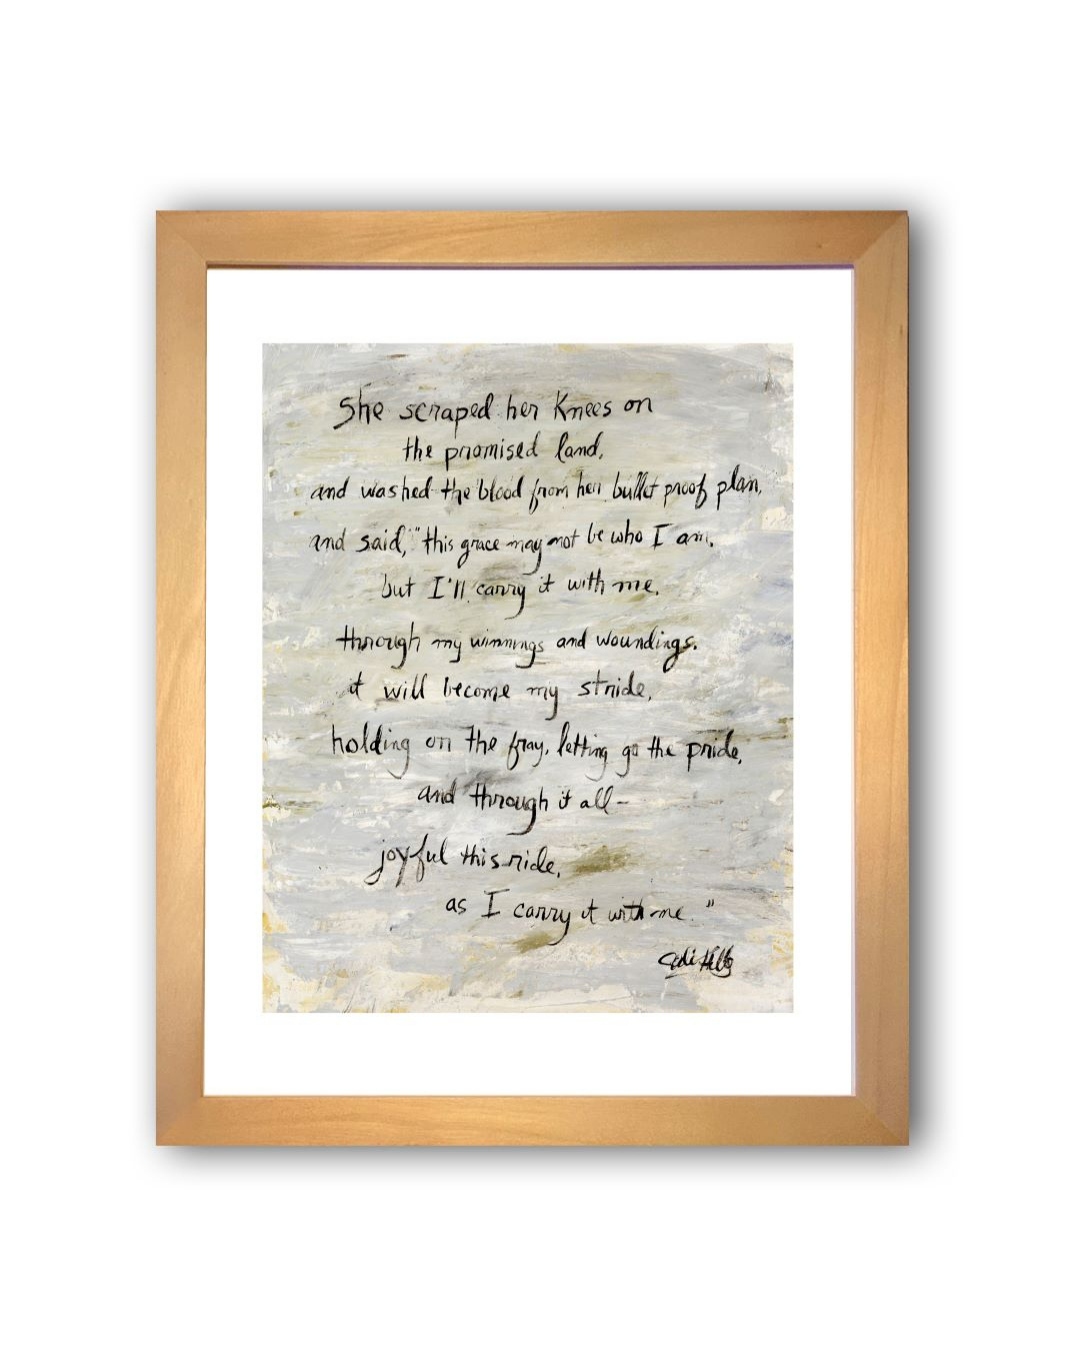 She scraped her Knees on
the promised land,
and washed the blood from her bullet proof plan,
and said, "this grace may not be who I am,
but I'll carry it with me,
through my winnings and woundings.
it will become my stride,
holding on the fray, letting go the pride,
and through it all-
joyful this ride,
as I carry it with me."